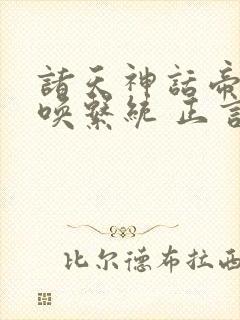 諸天神話帝
喚繫統 正
比尔德布拉西